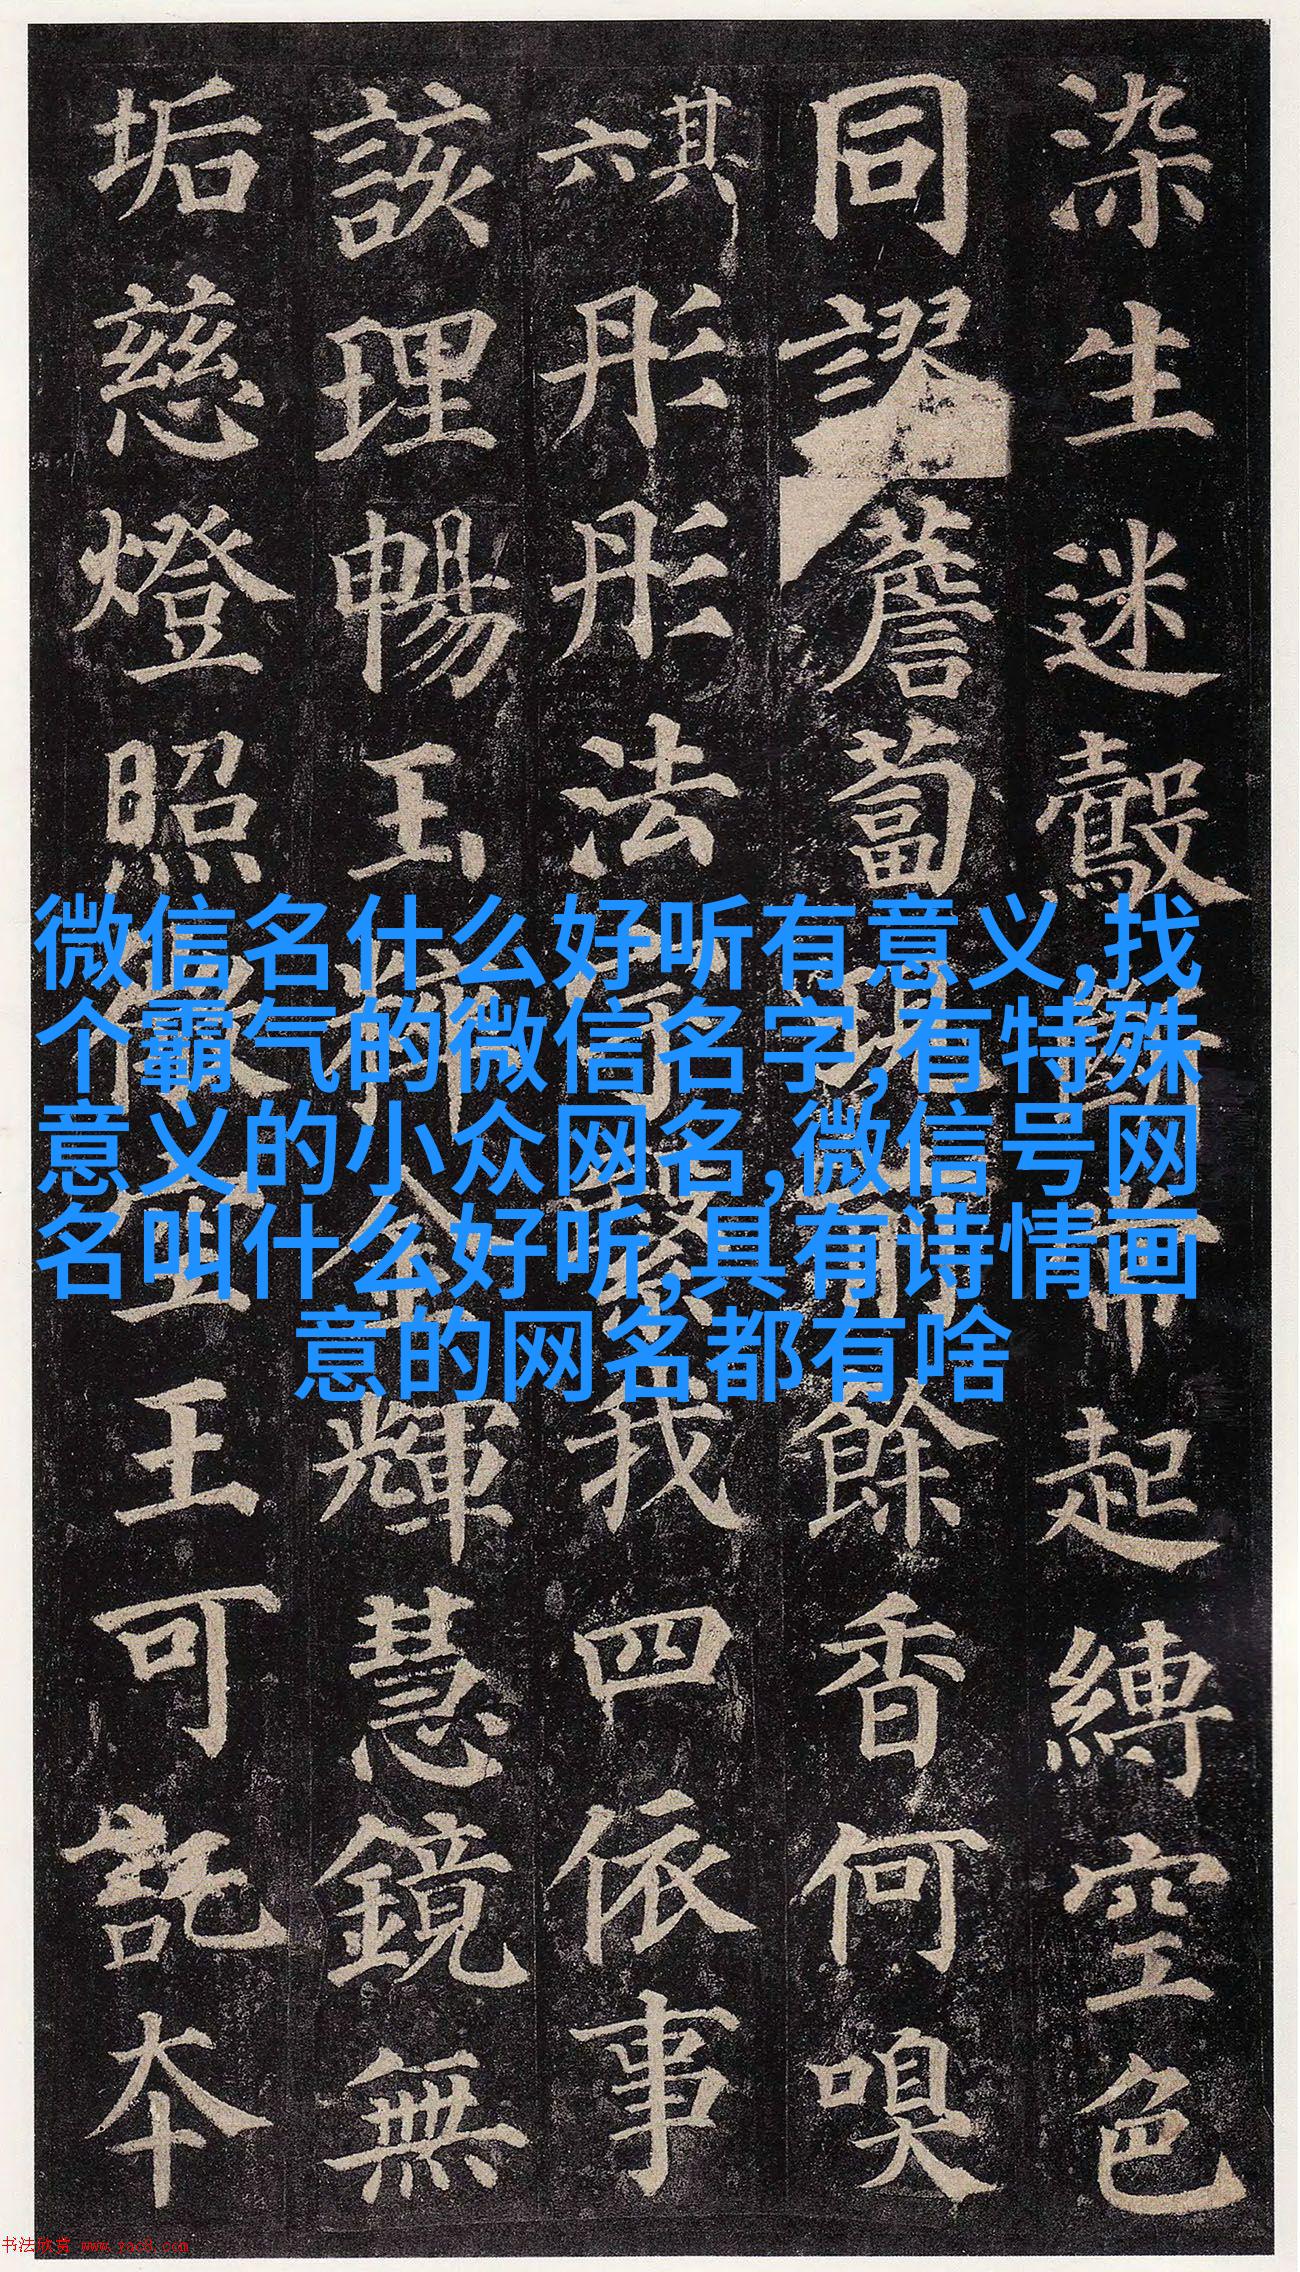 染生迷鷇斷常起縛空色
同謬薝蔔現前餘香何嗅
其六彤彤法宇繄我四依事
該理暢玉粹金輝慧鏡無
垢慈燈照微空王可託本
微信名什么好听有意义,找
个霸气的微信名字,有特殊
意义的小众网名,微信号网
名叫什么好听,具有诗情画
意的网名都有啥
书法欣赏 www.yac8.com